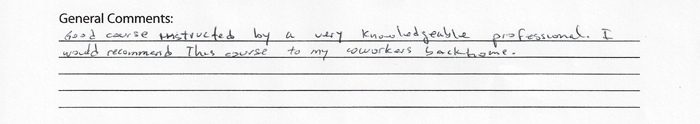 General Comments:
Good course instructed by a very knowledgeable professional. I
would recommend This course to my coworkers back home.